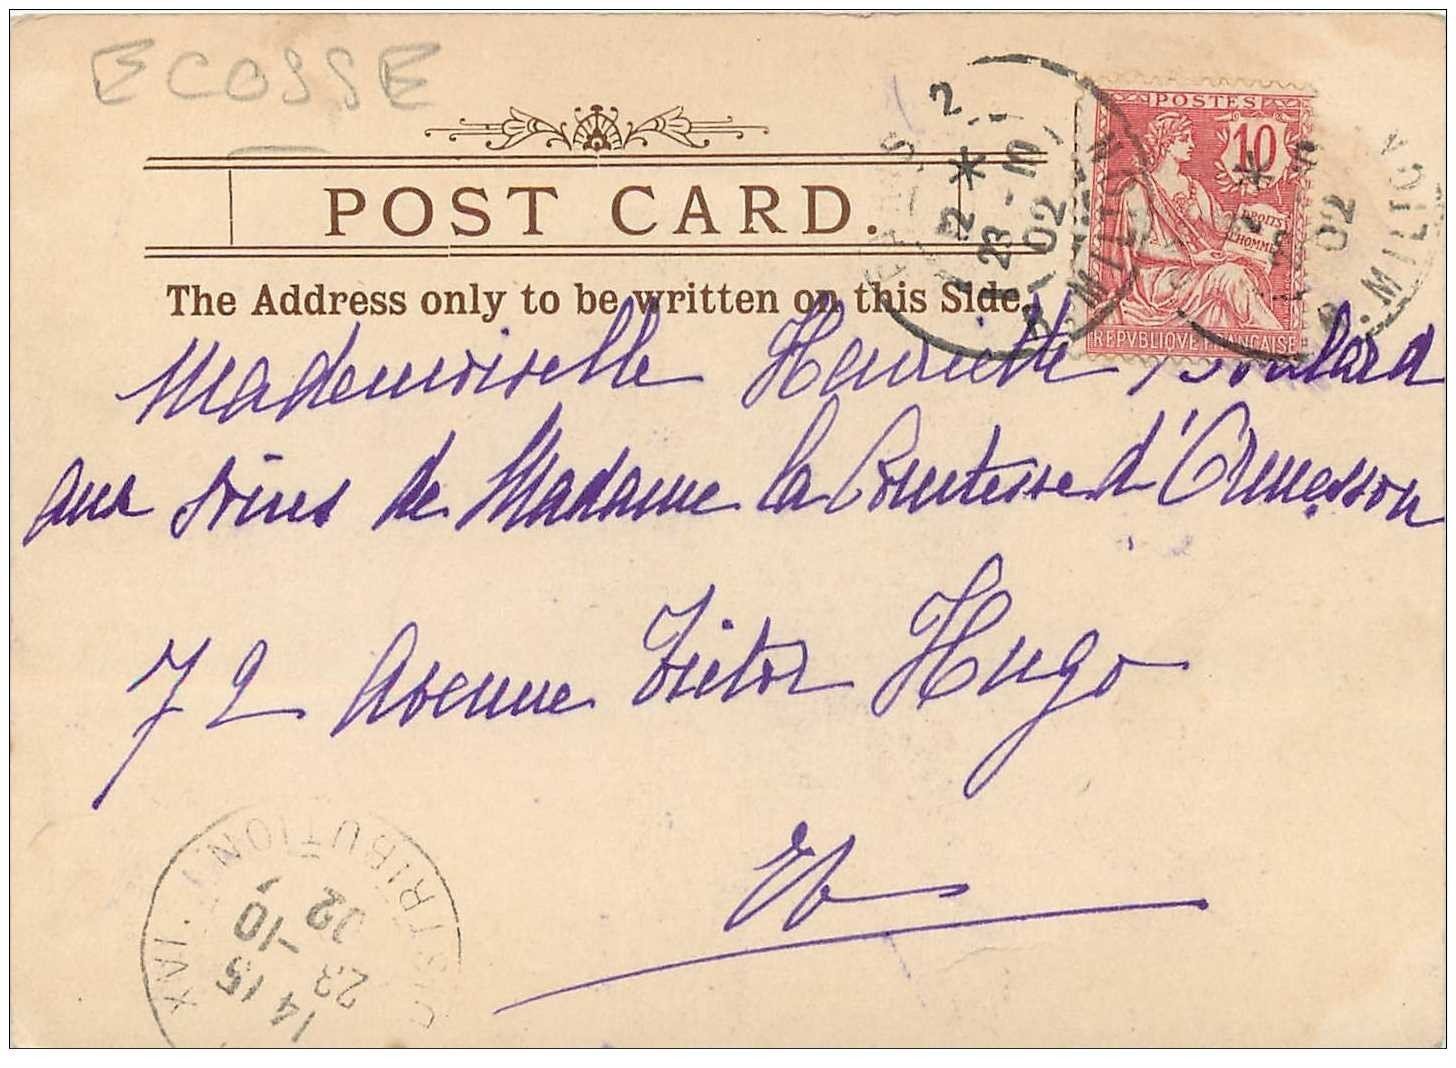 ECOSSE
POSTES
10
POST CARD.
DROITS
HOMME
The Address only to be written on this Side.
REPVBLIQVE FRANÇAISE
2
12 *
23 - 10
02
R. MILTON
02
R. MILTON
Mademoiselle Henriette Boulard
aux soins de Madame la Comtesse d'Ormesson
72 Avenue Victor Hugo
DISTRIBUTION
XVI
14 15
23 -10
02